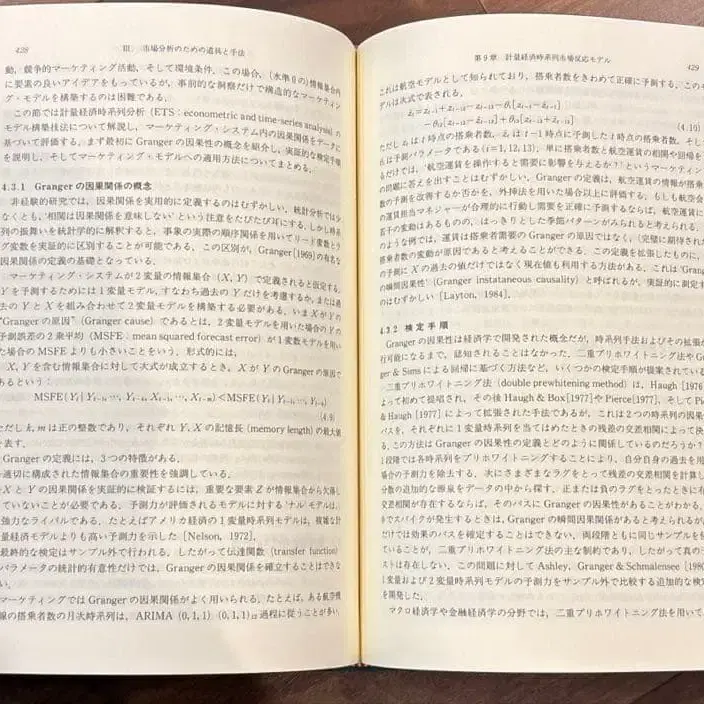 428
III 市場分析のための道具と手法
動，競争的マーケティング活動，そして環境条件．この場合，(水準IIの)情報集合内
に要素の良いアイデアをもっているが，事前的な洞察だけで構造的なマーケティン
グ・モデルを構築するのは困難である．
この節では計量経済時系列分析 (ETS：econometric and time-series analysis) の
モデル構築技法について解説し，マーケティング・システム内の因果関係をデータに
基づいて評価する．まず最初に Granger の因果性の概念を紹介し，実証的な検定手順
を説明し，そしてマーケティング・モデルへの適用方法についてまとめる．
4.3.1 Granger の因果関係の概念
非経験的研究では，因果関係を実用的に定義するのはむずかしい．統計分析では少
なくとも，'相関は因果を意味しない' という注意をたびたび耳にする．しかし時系
列の振舞いを統計学的に解釈すると，事象の実際の順序関係を用いてリード変数とラ
グ変数を実証的に区別することが可能である．この区別が，Granger[1969]の有名な
因果関係の定義の基礎となっている．
マーケティング・システムが2変量の情報集合 (X, Y) で定義されると仮定する．
Y を予測するためには1変量モデル，すなわち過去の Y だけを考慮するか，または過
去の Y と X を組み合わせて2変量モデルを構築する必要がある．いま X が Y の
"Granger の原因" (Granger cause) であるとは，2変量モデルを用いた場合の Y の
予測誤差の2乗平均 (MSFE：mean squared forecast error) が1変数モデルを用い
た場合の MSFE よりも小さいことをいう．形式的には，
X, Y を含む情報集合に対して次式が成立するとき，X が Y の Granger の原因で
あるという：
MSFE(Yt｜Yt-1, …, Yt-k, Xt-1, …, Xt-m)＜MSFE(Yt｜Yt-1, …, Yt-k)
(4.9)
ただし k, m は正の整数であり，それぞれ Y, X の記憶長 (memory length) の最大値
を表す．
Granger の定義には，3つの特徴がある．
適切に構成された情報集合の重要性を強調している．
X と Y の因果関係を実証的に検証するには，重要な要素 Z が情報集合から欠落し
ていないことが必要である．予測力が評価されるモデルに対する'ナル'モデルは，
強力なライバルである．たとえばアメリカ経済の1変量時系列モデルは，複雑な計
量経済モデルよりも高い予測力を示した [Nelson, 1972]．
最終的な検定はサンプル外で行われる．したがって伝達関数 (transfer function)
パラメータの統計的有意性だけでは，Granger の因果関係を確立することはできな
い．
マーケティングでは Granger の因果関係がよく用いられる．たとえば，ある航空機
線の搭乗者数の月次時系列は，ARIMA (0, 1, 1) (0, 1, 1)12 過程に従うことが多い．
第9章 計量経済時系列市場反応モデル
429
これは航空モデルとして知られており，搭乗者数をきわめて正確に予測する．このモ
デルは次式で表される．
(4.10)
の予測に X の過去の値だけではなく現在値も利用する方法がある．これは 'Granger
の瞬間因果性' (Granger instataneous causality) と呼ばれるが，実証的に測定する
のはむずかしい [Layton, 1984]．
4.3.2 検定手順
Granger の因果性は経済学で開発された概念だが，時系列手法およびその拡張が
行可能になるまで，認知されることはなかった．二重プリホワイトニング法や Gran
ger & Sims による回帰に基づく方法など，いくつかの検定手順が提案されている．
二重プリホワイトニング法 (double prewhitening method) は，Haugh [1976]
よって初めて提唱され，その後 Haugh & Box[1977] や Pierce[1977]，そして Pierce
& Haugh [1977] によって拡張された手法であるが，これは2つの時系列の因果
パスを，それぞれに1変量時系列を当てはめたときの残差の交差相関によって決
る．この方法は Granger の因果性の定義とどのように関係しているのだろうか？
1段階では各時系列をプリホワイトニングすることにより，自分自身の過去を用
場合の予測力を除去する．次にさまざまなラグをとって残差の交差相関を計算し
分散の追加的な源泉をデータの中から探す．正または負のラグをとったときに有
交差相関が存在するならば，そのパスに Granger の因果性があることがわかる．
0でスパイクが発生するときは，Granger の瞬間因果関係があると考えられるが
だけでは効果のパスを確定することはできない．両段階ともに同じサンプルを使
ていることが，二重プリホワイトニング法の主な制約であり，したがって真の予
ストは存在しない．この問題に対して Ashley, Granger & Schmalensee [1980]
1変量および2変量時系列モデルの予測力をサンプル外で比較する追加的な検定
を開発した．
マクロ経済学や金融経済学の分野では，二重プリホワイトニング法を用いて，